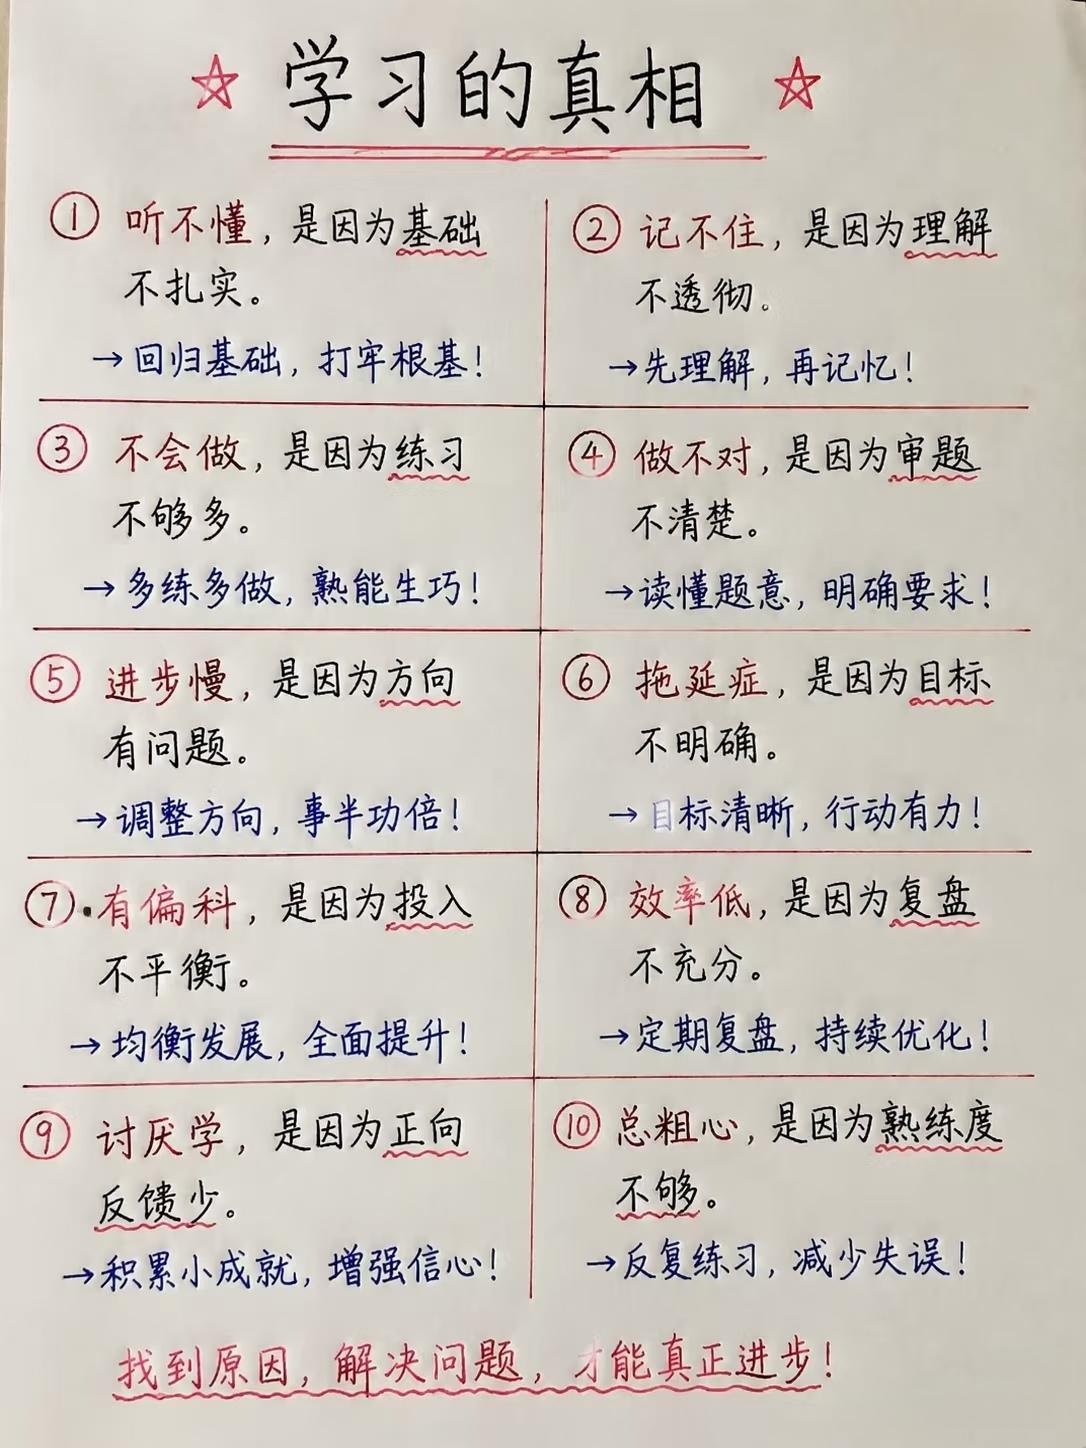 ☆ 学习的真相 ☆
① 听不懂，是因为基础
不扎实。
→回归基础，打牢根基！
② 记不住，是因为理解
不透彻。
→先理解，再记忆！
③ 不会做，是因为练习
不够多。
→多练多做，熟能生巧！
④ 做不对，是因为审题
不清楚。
→读懂题意，明确要求！
⑤ 进步慢，是因为方向
有问题。
→调整方向，事半功倍！
⑥ 拖延症，是因为目标
不明确。
→目标清晰，行动有力！
⑦·有偏科，是因为投入
不平衡。
→均衡发展，全面提升！
⑧ 效率低，是因为复盘
不充分。
→定期复盘，持续优化！
⑨ 讨厌学，是因为正向
反馈少。
→积累小成就，增强信心！
⑩ 总粗心，是因为熟练度
不够。
→反复练习，减少失误！
找到原因，解决问题，才能真正进步！